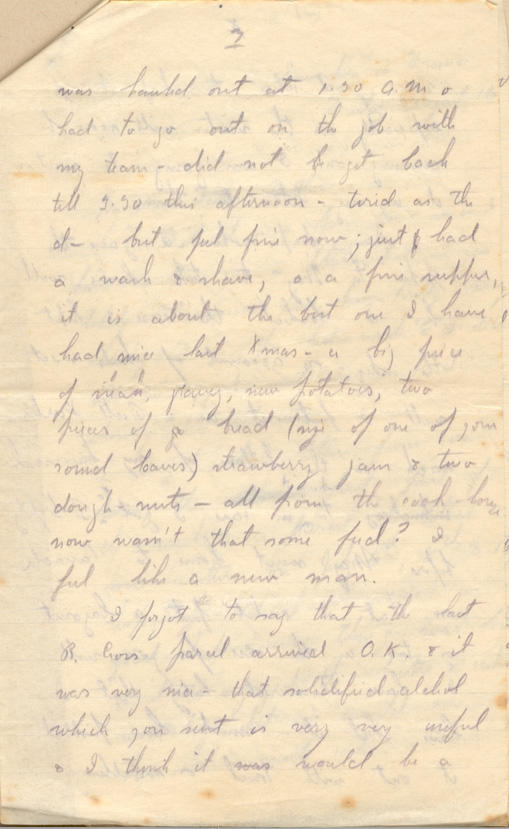 7
was hauled out at 1.30 a.m &
had to go out on the job with
my team - did not get back
till 3.30 this afternoon - tired as the
d- but feel fine now; just had
a wash & shave, & a fine supper,
it is about the best one I have
had since last Xmas - a big piece
of steak, gravy, new potatoes, two
pieces of bread (size of one of your
round loaves) strawberry jam & two
dough-nuts - all from the cook-house
now wasn't that some feed? I
feel like a new man.
I forgot to say that the last
R. Cross parcel arrived O.K. & it
was very nice - that solidified alcohol
which you sent is very very useful
& I think it was would be a